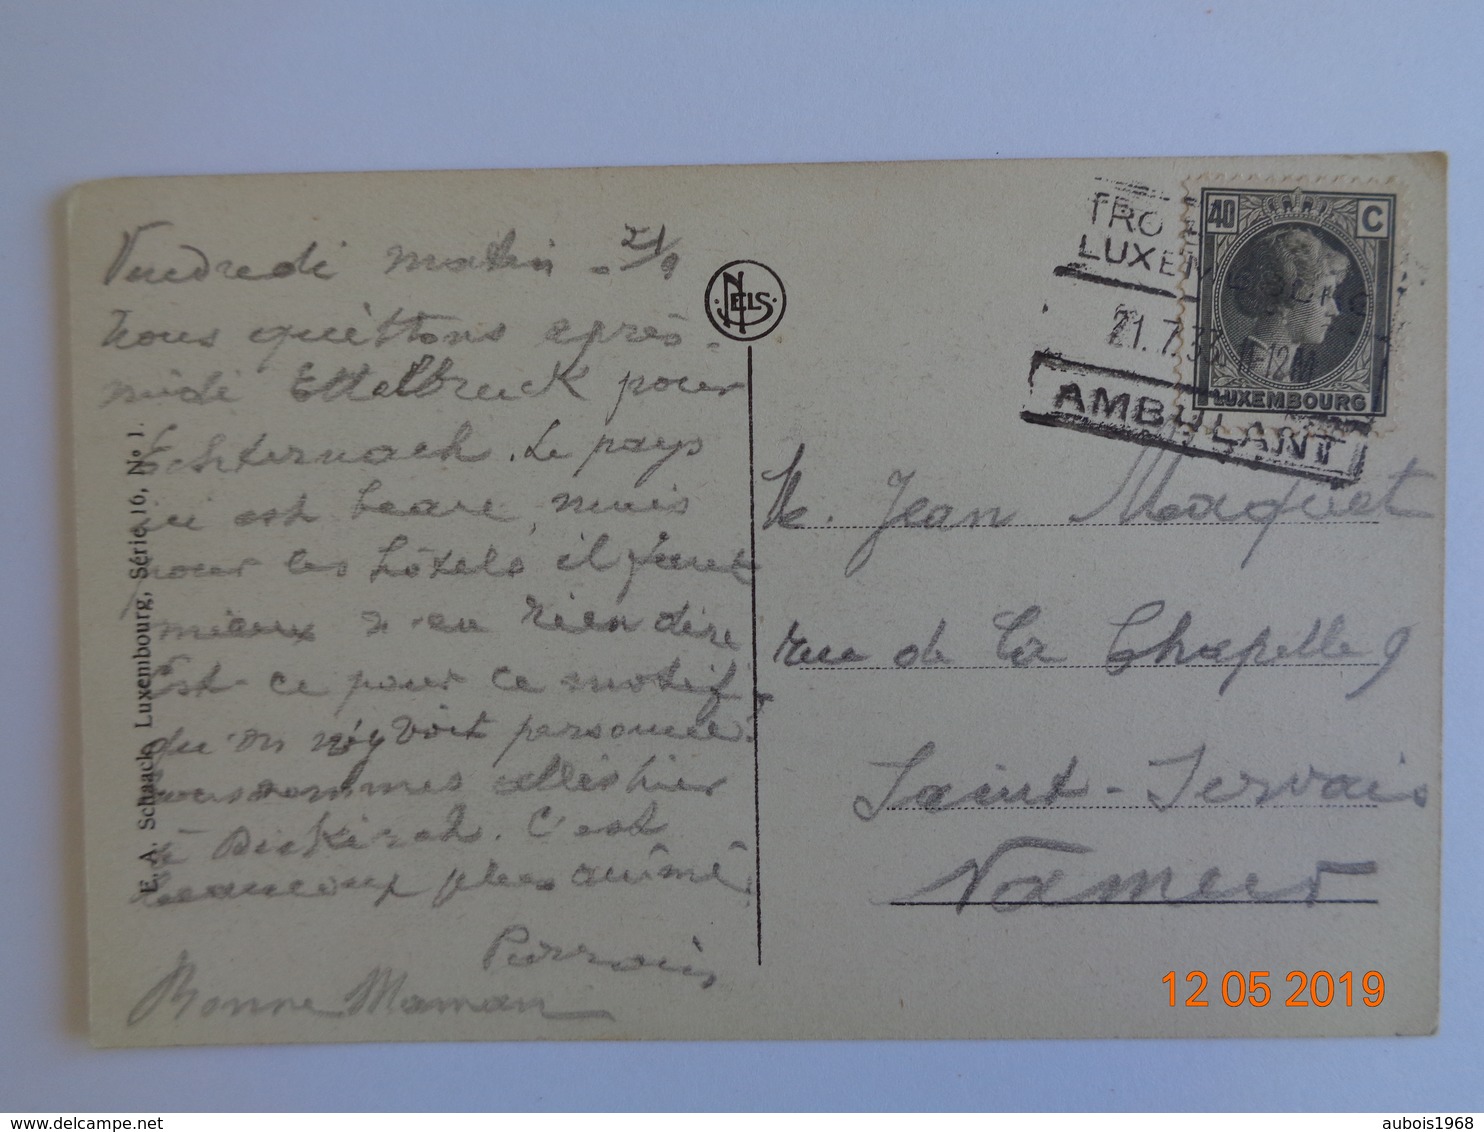 Vendredi matin - 21/7
Nous quittons après-
midi Ettelbruck pour
Echternach. Le pays
ici est beau, mais
pour les hôtels il faut
mieux n'en rien dire
Est-ce pour ce motif
qu'on n'y voit personne?
Nous sommes allés hier
à Diekirch. C'est
beaucoup plus animé
Parrain
Bonne Maman
E. A. Schaack, Luxembourg, Série 16, No 1.
NELS
TRO
LUXEMBOURG
21.7.33 11-12M
AMBULANT
40 C
LUXEMBOURG
M. Jean Maquet
rue de la Chapelle 9
Saint-Servais
Namur
12 05 2019
delcampe.net
aubois1968